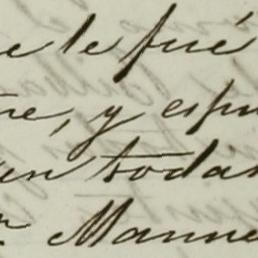 e le fué
re, y espu
en todas
r Manue